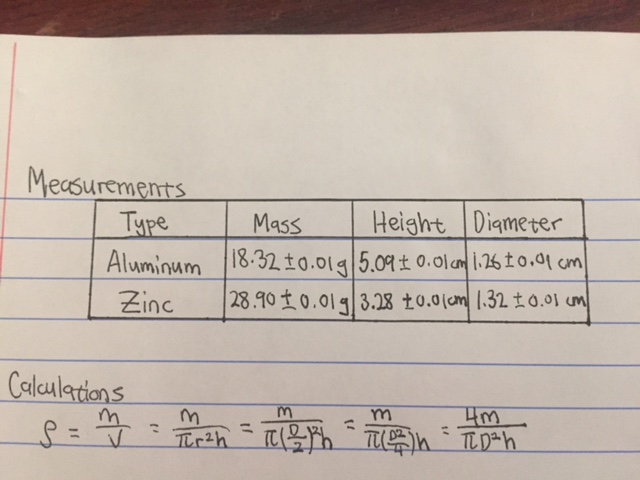 Measurements
Type Mass Height Diameter
Aluminum 18.32 ± 0.01 g 5.09 ± 0.01 cm 1.26 ± 0.01 cm
Zinc 28.90 ± 0.01 g 3.28 ± 0.01 cm 1.32 ± 0.01 cm
Calculations
ρ = m/V = m/(πr²h) = m/(π(D/2)²h) = m/(π(D²/4)h) = 4m/(πD²h)